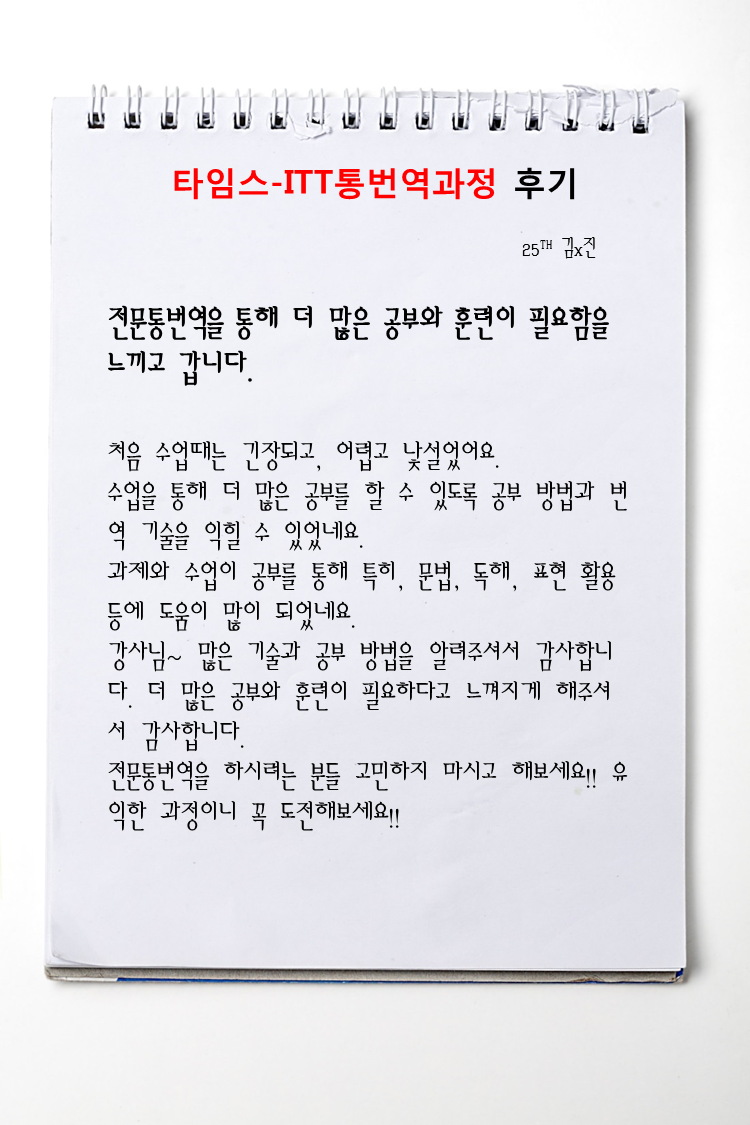 타임스-ITT통번역과정 후기
25TH 김x진
전문통번역을 통해 더 많은 공부와 훈련이 필요함을
느끼고 갑니다.
처음 수업때는 긴장되고, 어렵고 낯설었어요.
수업을 통해 더 많은 공부를 할 수 있도록 공부 방법과 번
역 기술을 익힐 수 있었네요.
과제와 수업이 공부를 통해 특히, 문법, 독해, 표현 활용
등에 도움이 많이 되었네요.
강사님~ 많은 기술과 공부 방법을 알려주셔서 감사합니
다. 더 많은 공부와 훈련이 필요하다고 느껴지게 해주셔
서 감사합니다.
전문통번역을 하시려는 분들 고민하지 마시고 해보세요!! 유
익한 과정이니 꼭 도전해보세요!!